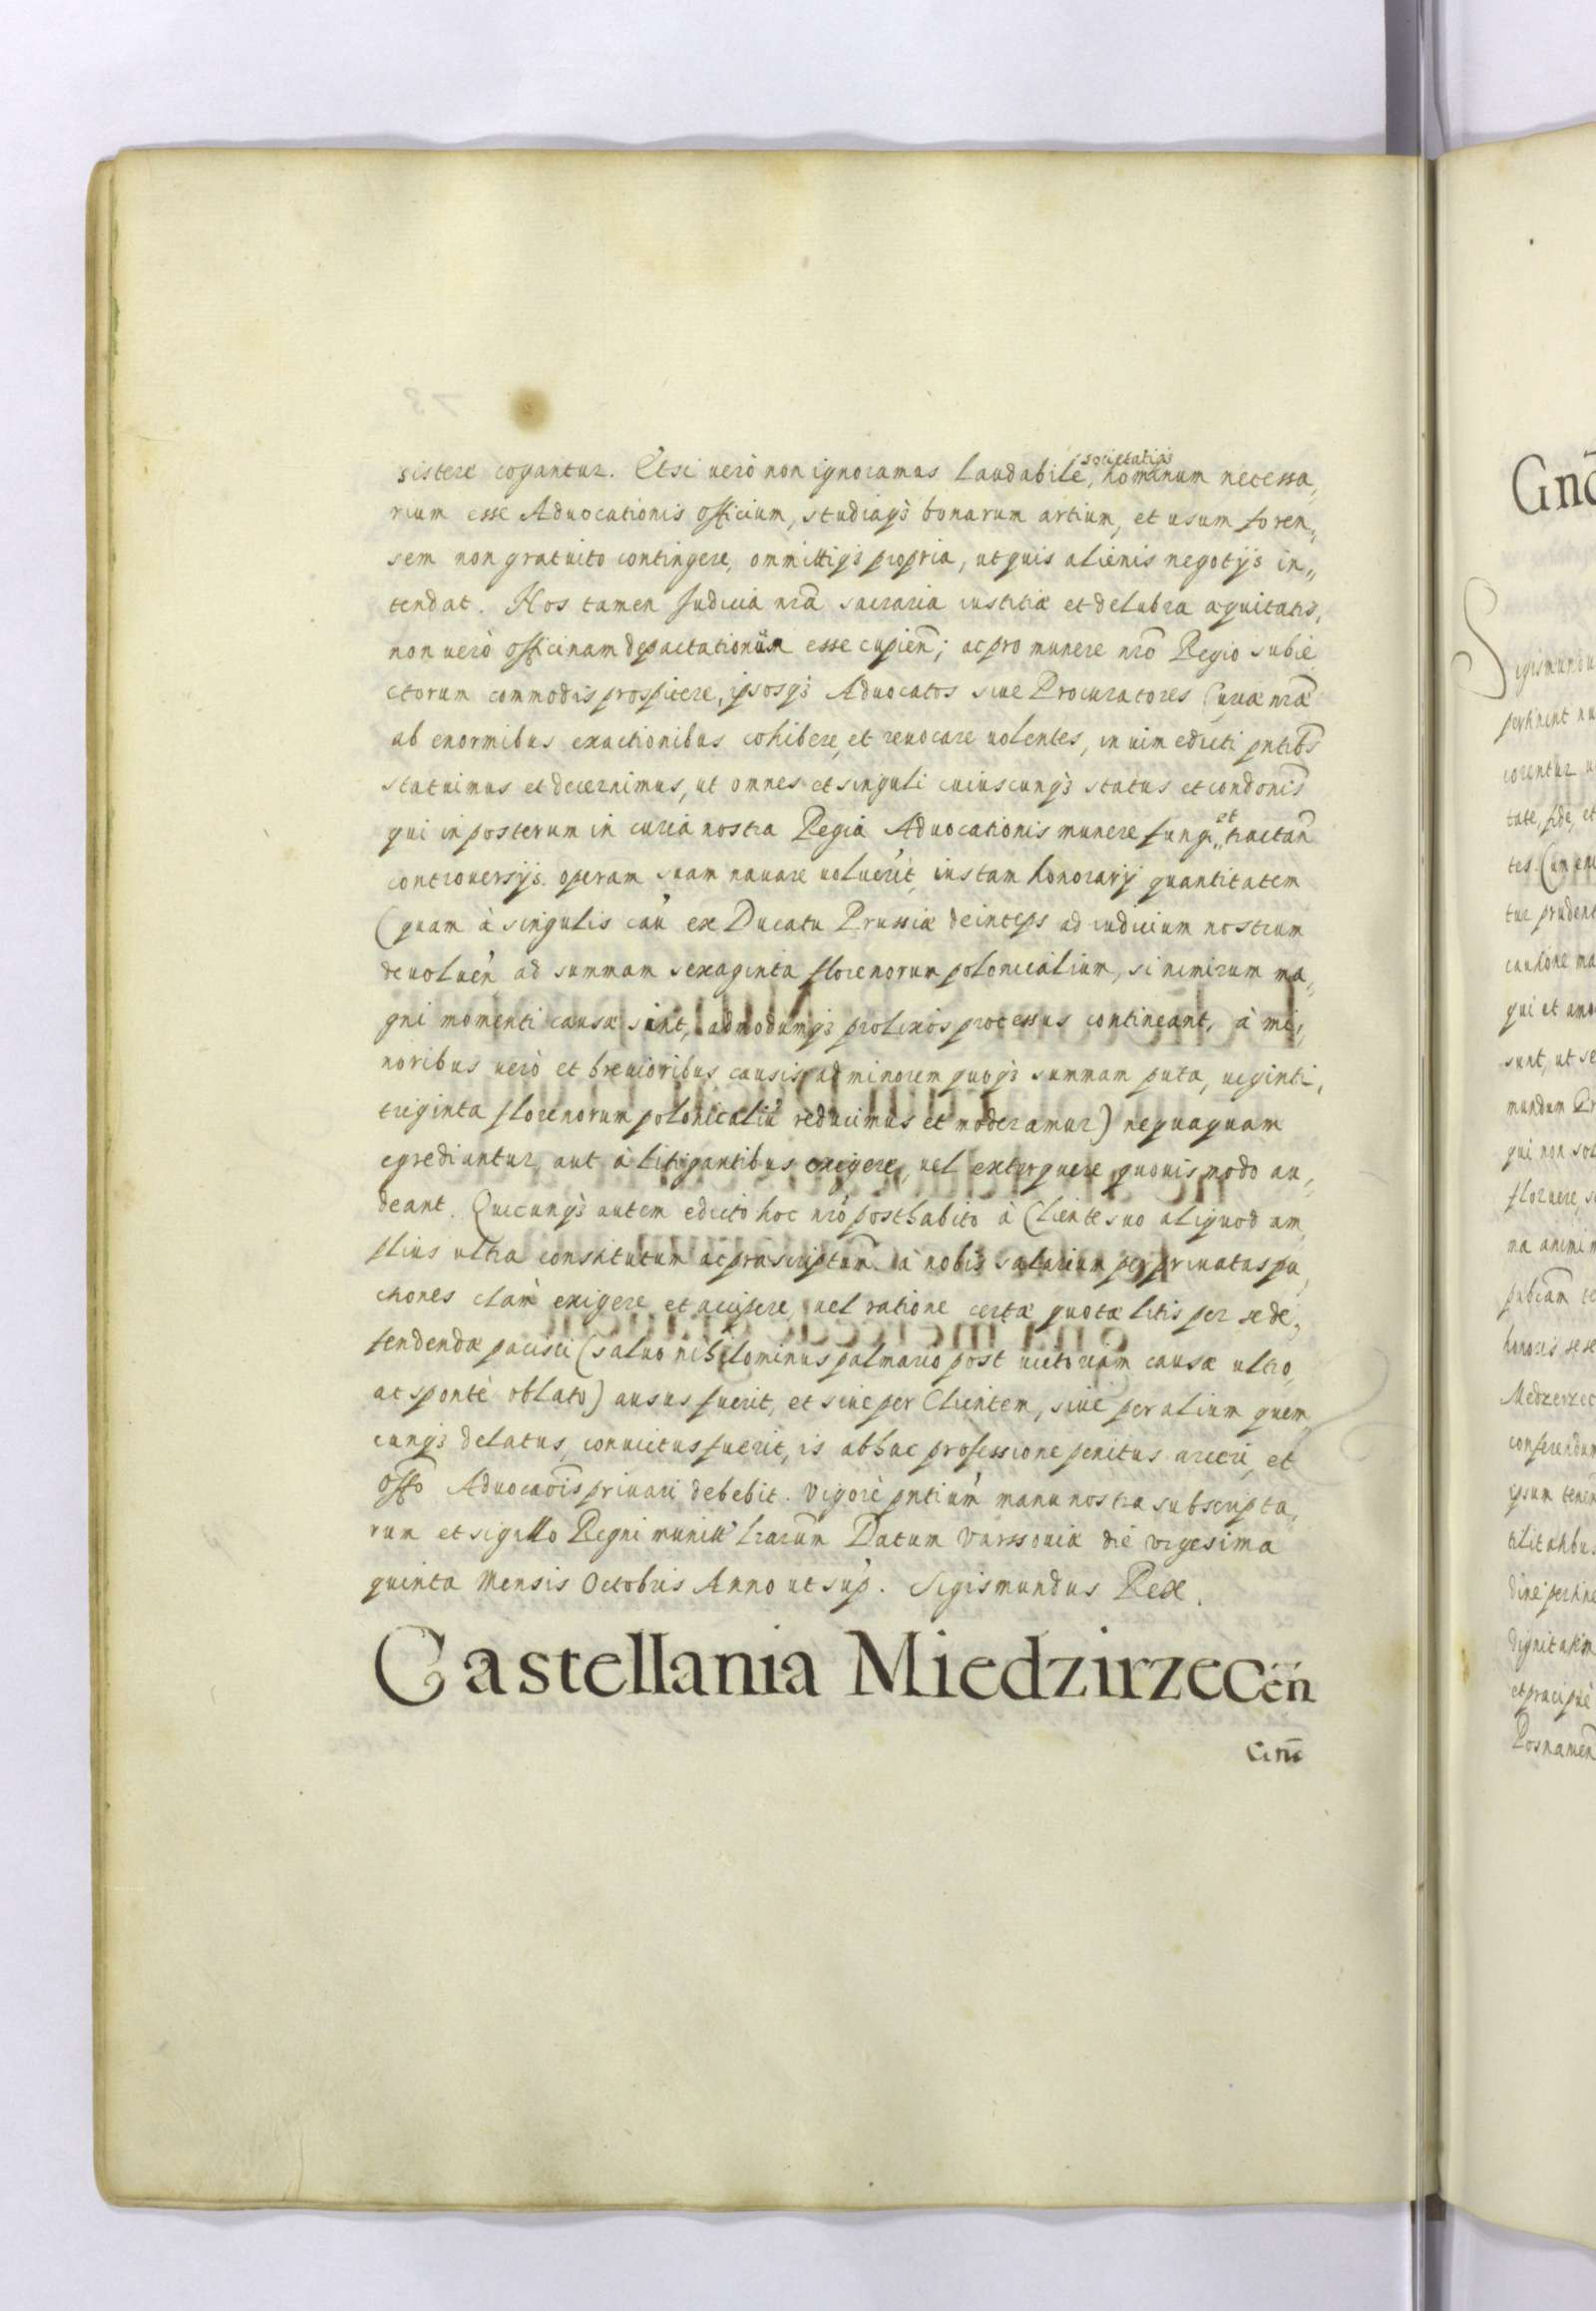 sistere cogantur. Etsi uerò non ignoramus laudabile, societatiqȝ hominum necessa,
rium esse Aduocationis officium, studiaqȝ bonarum artium, et usum foren„
sem non gratuito contingere, ommittiqȝ propria, ut quis alienis negotijs in„
tendat. Nos tamen Judicia nr̄a sacraria iustitiæ et delubra æquitatis,
non uerò officinam depactationum esse cupien̄; ac pro munere nr̄o Regio subie
ctorum commodis prospicere, ipsosqȝ Aduocatos siue Procuratores Curiæ nr̄æ
ab enormibus exactionibus cohibere, et reuocare uolentes, in uim edicti pn̄tibs̄
statuimus et decernimus, ut omnes et singuli cuiuscunqȝ status et condonis̄
qui in posterum in curia nostra Regia Aduocationis munere fungi„ et tractan̄
controuersijs operam suam nauare uoluerit, iustam honorarij quantitatem
(quam à singulis cau̓ ex Ducatu Prussiæ deinceps ad iudicium nostrum
deuoluen̓, ad summam sexaginta florenorum polonicalium, si nimirum ma,
gni momenti causæ sint, admodumqȝ prolixos processus contineant, à mi,
noribus uerò et breuioribus causis, ad minorem quoqȝ summam puta, uiginti,
triginta florenorum polonicaliū reducimus et moderamur) nequaquam
egrediantur, aut à litigantibus exigere, uel extorquere quouis modo au,
deant. Quicunqȝ autem edicto hoc nr̄o posthabito à Cliente suo aliquod am
plius ultra constitutum ac præscriptum à nobis salarium per priuatas pa,
ctiones clàm exigere et accipere, uel ratione certæ quotæ litis per se de„
fendendæ pacisci (saluo nihilominus palmario post uictoriam causæ ultro,
ac spontè oblato) ausus fuerit, et siue per Clientem, siue per alium quem„
cunqȝ delatus, conuictus fuerit, is ab hac professione penitus arceri, et
offō Aduocaōis priuari debebit. Vigore pn̄tium̓ manu nostra subscripta,
rum et sigillo Regni munit̓ lr̄arum̄ Datum Varssouiæ die vigesima
quinta Mensis Octobris Anno ut sup̓. Sigismundus Rex.
Castellania Miedzirzecen̄
Gnē